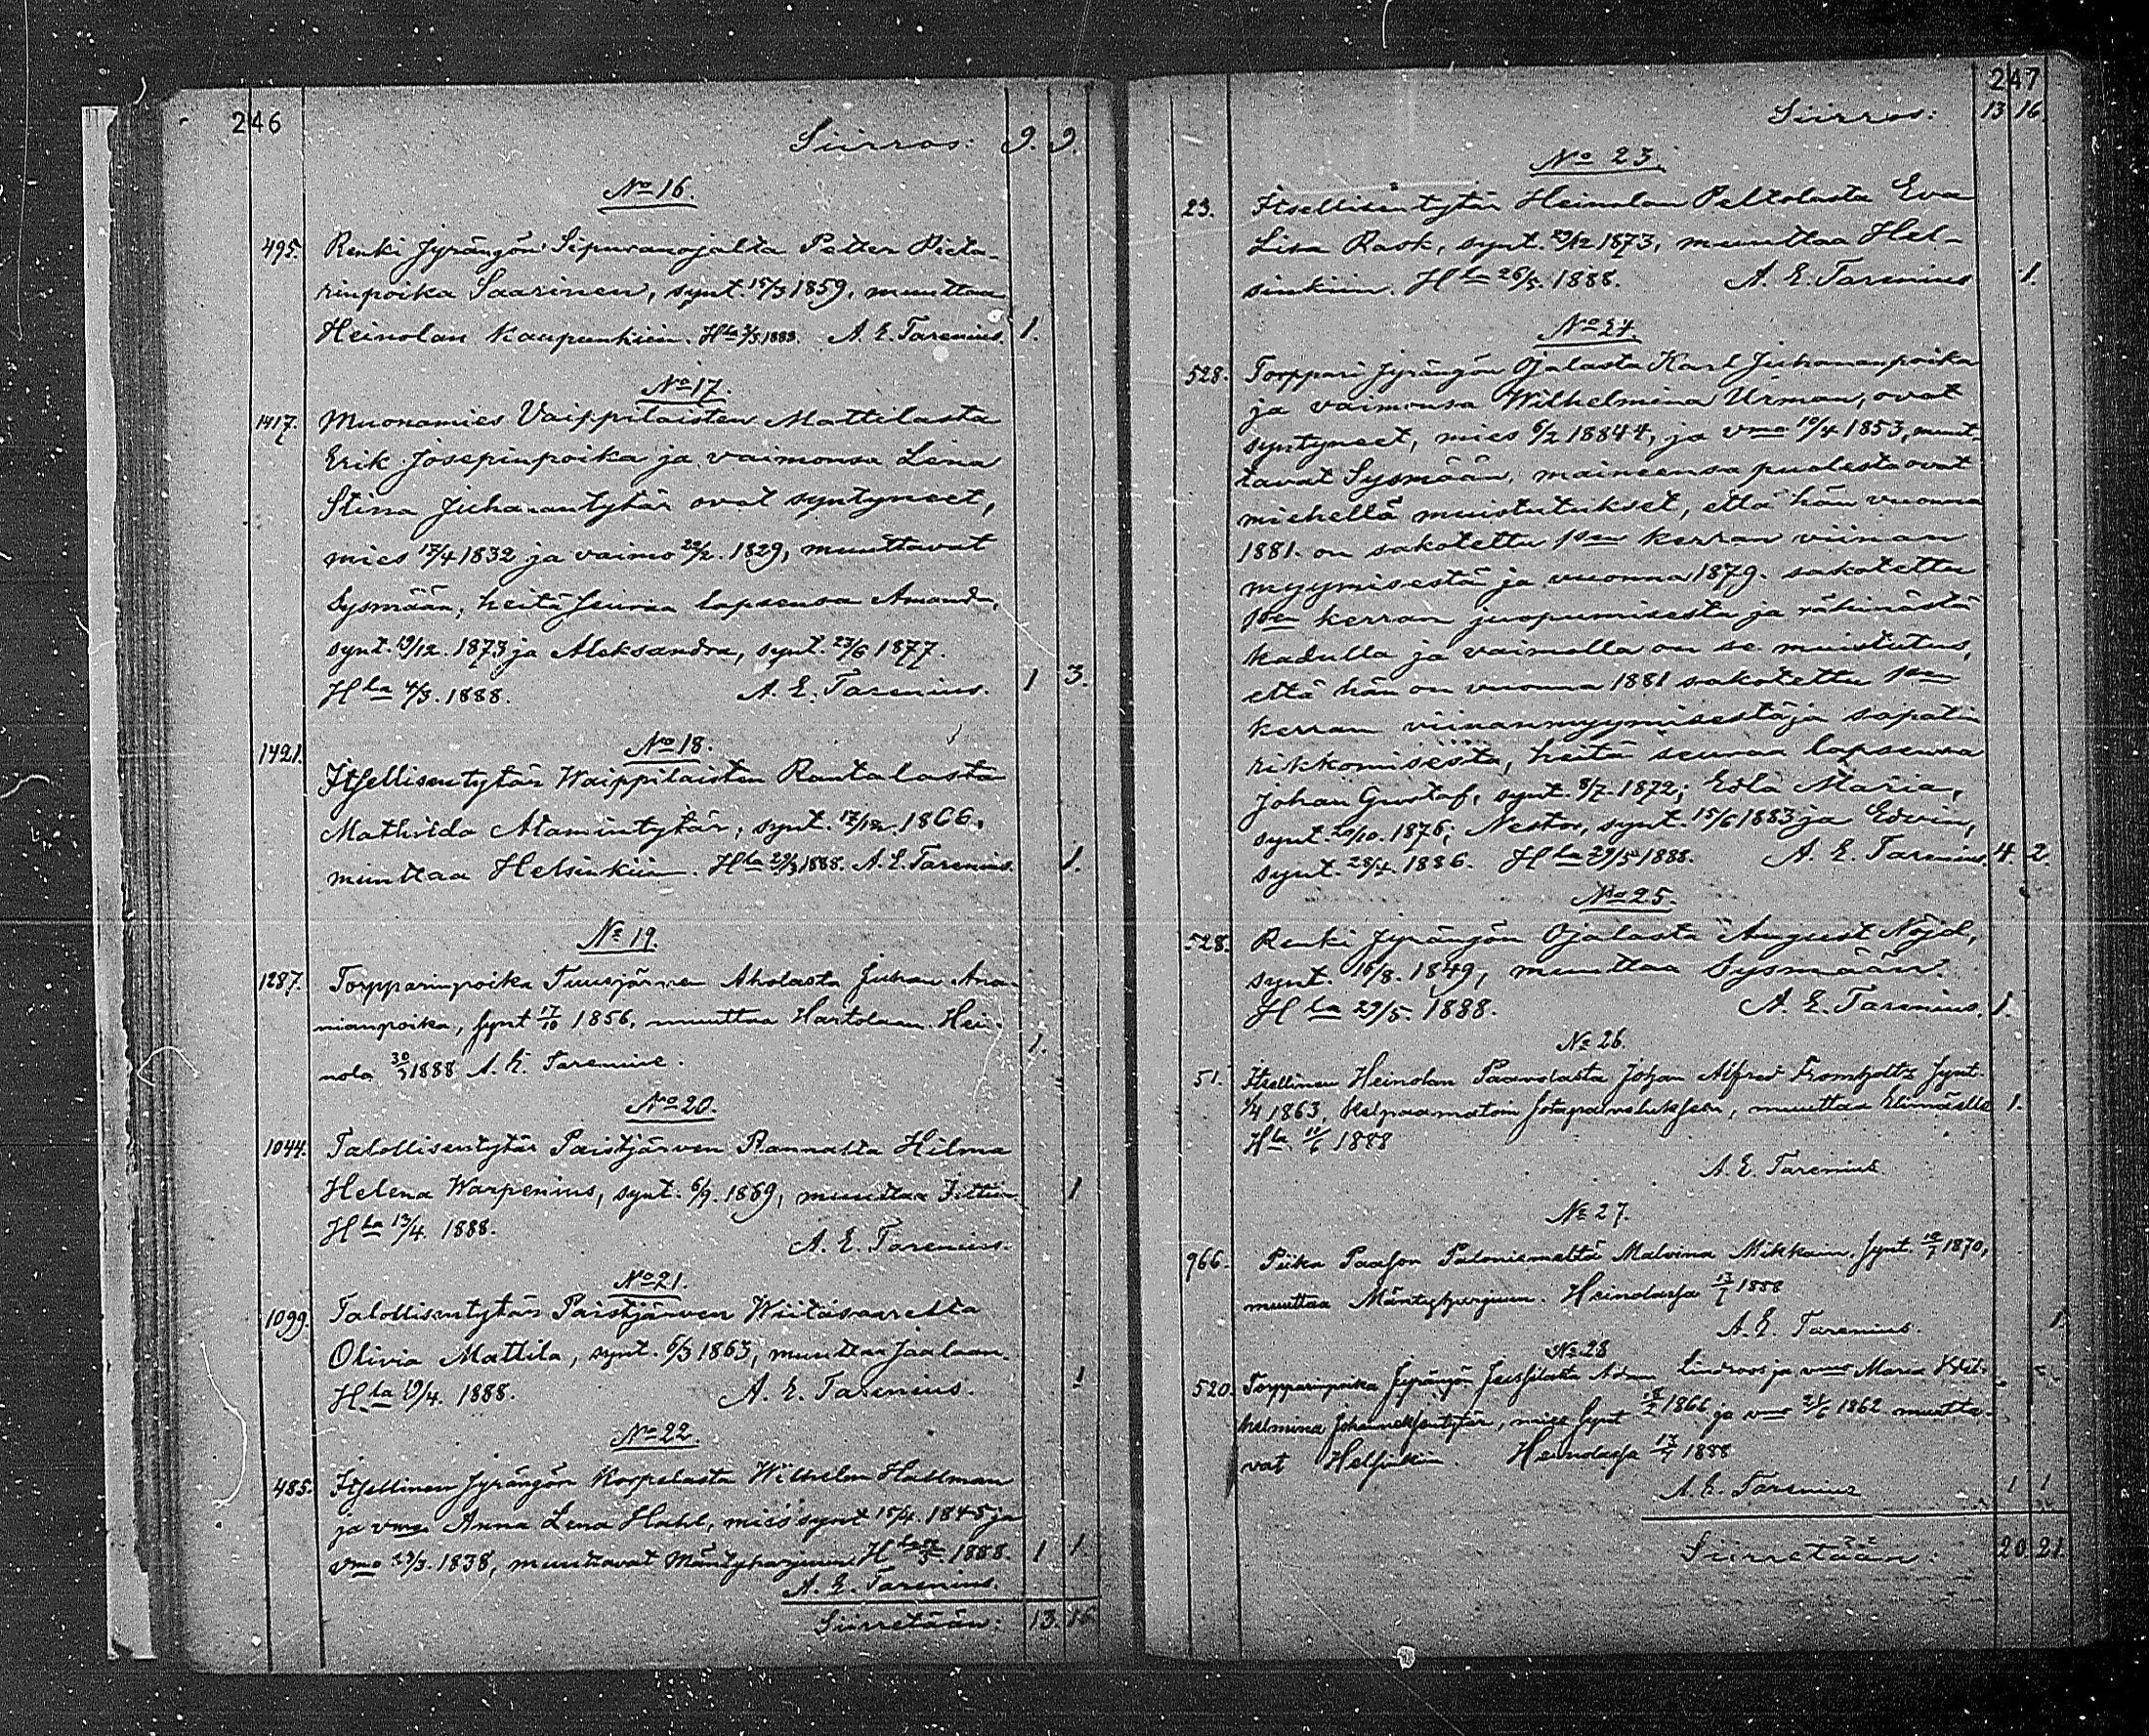 246
Siirros: 9. 9.
No 16.
495. Renki Jyrängön Sipuranojalta Petter Pieta-
rinpoika Saarinen, synt. 15/3 1859, muuttaa
Heinolan kaupunkiin. Hla 3/3 1888. A. E. Tarenius. 1.
No 17.
1417. Muonamies Vaippilaisten Mattilasta
Erik Josepinpoika ja vaimonsa Lena
Stina Juhanantytär ovat syntyneet,
mies 17/4 1832 ja vaimo 22/2. 1829, muuttavat
Sysmään, heitä seuraa lapsensa Amanda,
synt. 19/12. 1873 ja Aleksandra, synt. 23/6 1877.
Hla 4/3. 1888. A. E. Tarenius. 1 3.
No 18.
1421. Itsellisentytär Waippilaisten Rantalasta
Mathilda Adamintytär, synt. 17/12. 1866.
muuttaa Helsinkiin. Hla 29/3 1888. A. E. Tarenius. 1.
No 19.
1287. Torpparinpoika Tuusjärven Aholasta Juhan Ana-
nianpoika, synt 17/10 1856, muuttaa Hartolaan. Hei-
nola 30/3 1888 A. E. Tarenius. 1.
No 20.
1044. Talollisentytär Paistjärven Rannalta Hilma
Helena Warpenius, synt. 6/9. 1869, muuttaa Iittiin
Hla 13/4. 1888. 1
A. E. Tarenius.
No 21.
1099. Talollisentytär Paistjärven Wiitasaarelta
Olivia Mattila, synt. 6/3 1863, muuttaa Jaalaan.
Hla 19/4. 1888. A. E. Tarenius. 1
No 22.
485. Itsellinen Jyrängön Korpelasta Wilhelm Hallman
ja vmo. Anna Lena Hahl, mies synt 15/4. 1845 ja
vmo 23/3. 1838, muuttavat Mäntyharjuun Hla 1888. 1 1
A. E. Tarenius.
Siirretään: 13. 16
247
Siirros: 13 16.
No 23.
23. Itsellisentytär Heinolan Peltolasta Eva
Lisa Rask, synt. 29/12 1873, muuttaa Hel-
sinkiin. Hla 26/5. 1888. A. E. Tarenius 1.
No 24.
528. Torppari Jyrängön Ojalasta Karl Juhananpoika
ja vaimonsa Wilhelmina Urman, ovat
syntyneet, mies 6/2 18844, ja vmo 10/4 1853, muut-
tavat Sysmään, maineensa puolesta ovat
miehellä muistutukset, että hän vuonna
1881. on sakotettu 1sen kerran viinan
myymisestä ja vuonna 1879. sakotettu
1sen kerran juopumisesta ja rähinästä
kadulla ja vaimolla on se muistutus,
että hän on vuonna 1881 sakotettu 1sen
kerran viinanmyymisestä ja sapatin
rikkomisesta, heitä seuraa lapsensa
Johan Gustaf, synt. 8/7. 1872; Edla Maria,
synt. 20/10. 1876; Nestor, synt. 15/6 1883 ja Edvin,
synt. 28/4. 1886. Hla 29/5 1888. A. E. Tarenius. 4. 2.
No 25.
528. Renki Jyrängön Ojalasta August Nöjd,
synt. 16/8. 1849, muuttaa Sysmään.
Hla 29/5. 1888. A. E. Tarenius. 1.
No 26.
51. Itsellinen Heinolan Paavolasta Johan Alfred Fromholtz synt.
1/4 1863, kelpaamatoin sotapalvelukseen, muuttaa Elimäelle 1.
Hla 11/6 1888
A. E. Tarenius
No 27.
966. Piika Paason Paloniemeltä Malvina Mikkain, synt. 12/7 1870,
muuttaa Mäntyharjuun. Heinolassa 13/7 1888
A. E. Tarenius. 1
No 28
520. Torpparinpoika Jyrängön Jussilasta Adam Lindroos ja vmo Maria Vil-
helmina Johanneksentytär, mies synt 18/2 1866 ja vmo 21/6 1862 muutta-
vat Helsinkiin. Heinolassa 17/7 1888
A. E. Tarenius 1 1
Siirretään: 20. 21.